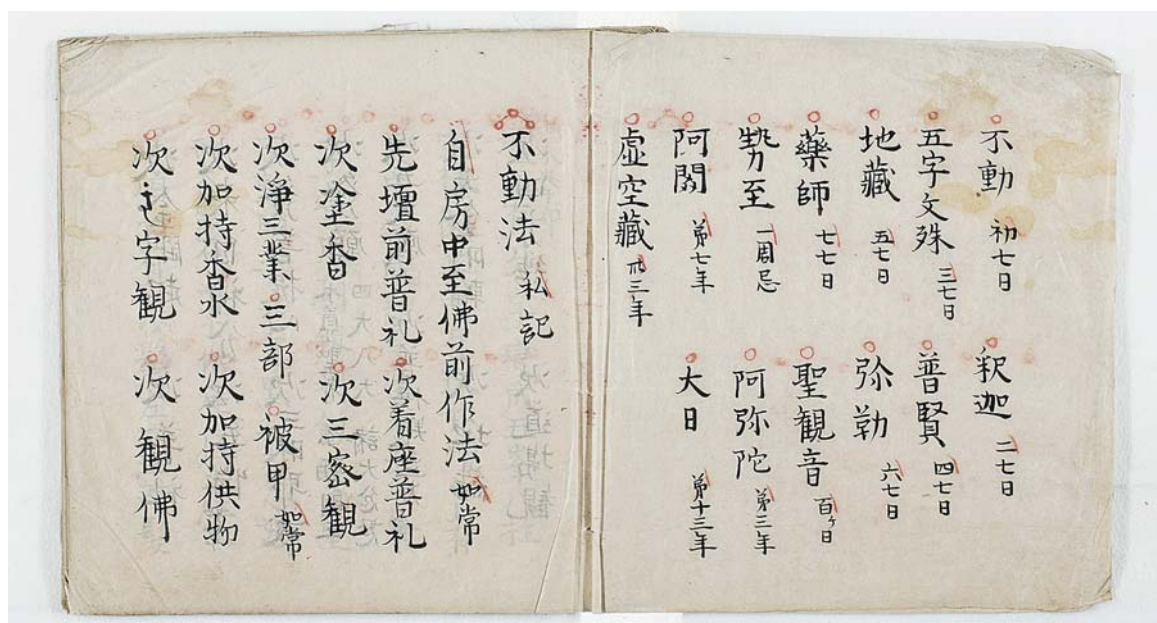 不動 初七日 釈迦 二七日
五字文殊 三七日 普賢 四七日
地藏 五七日 弥勒 六七日
藥師 七七日 聖観音 百ヶ日
勢至 一周忌 阿弥陀 第三年
阿閦 第七年 大日 第十三年
虚空藏 卅三年
不動法 私記
自房中至佛前作法 如常
先壇前普礼 次着座普礼
次塗香 次三密観
次淨三業 三部 被甲 如常
次加持香水 次加持供物
次字観 次観佛